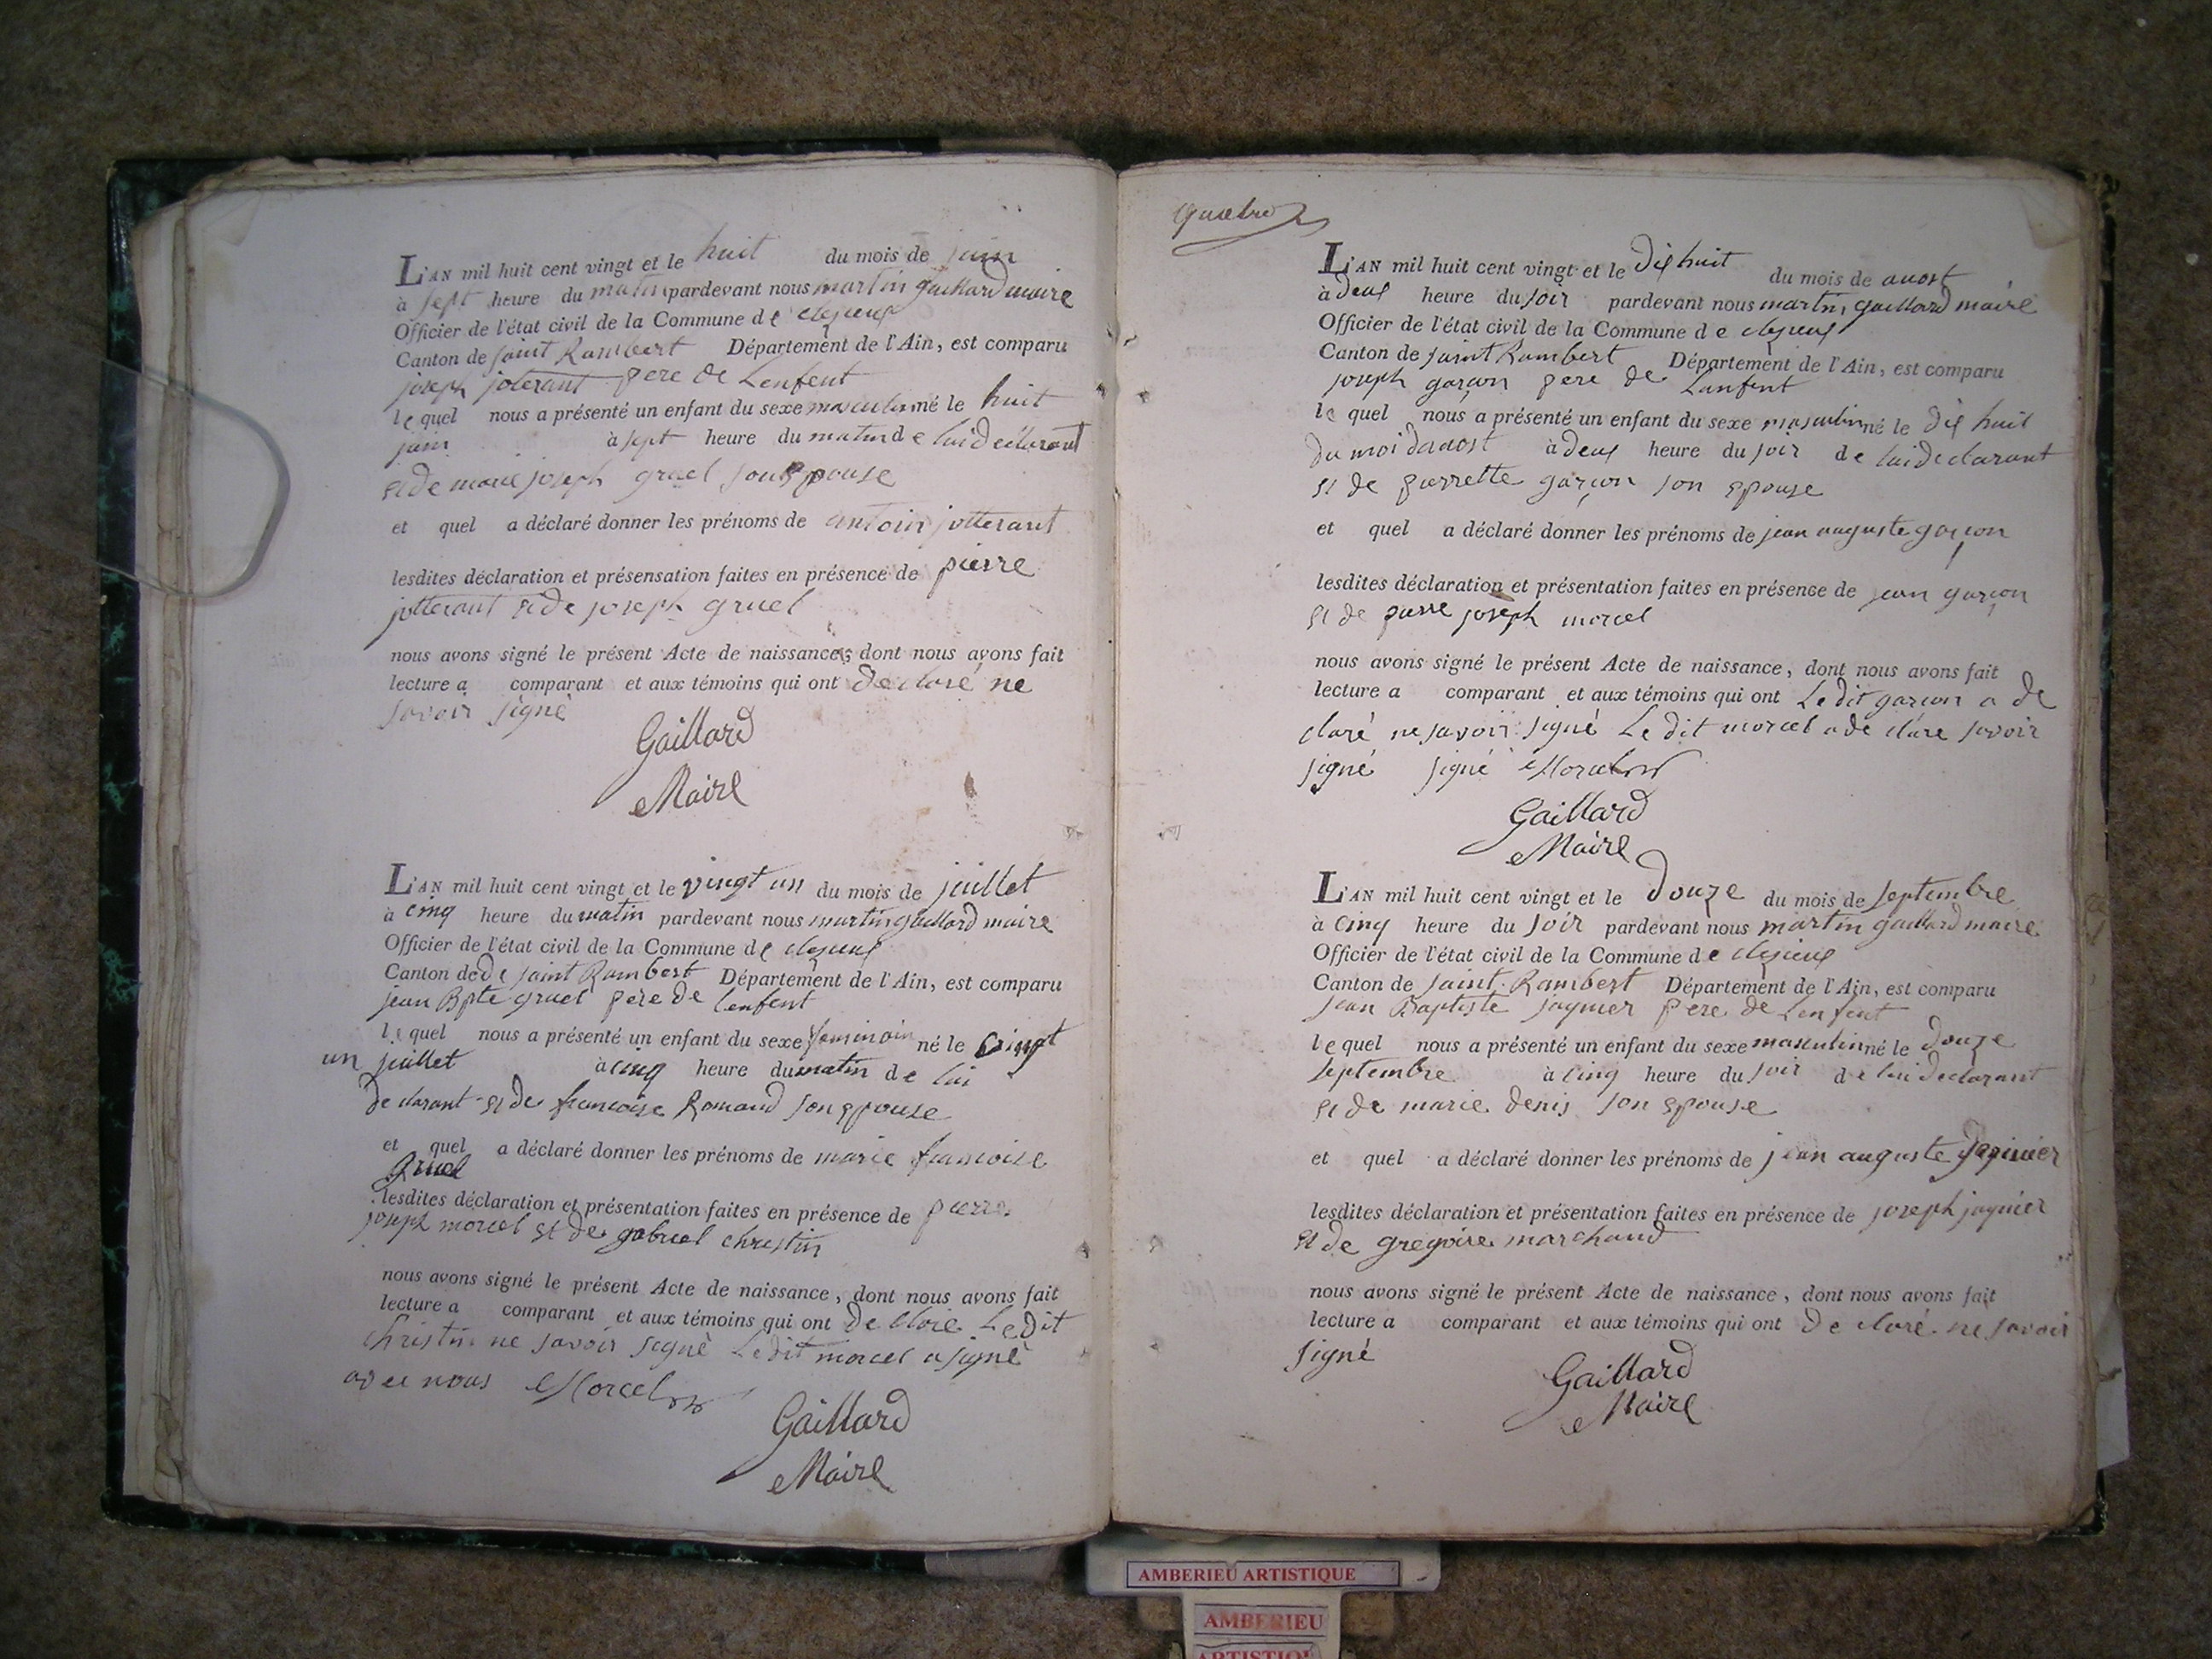 L'AN mil huit cent vingt et le huit du mois de juin
à sept heure du matin pardevant nous martin gaillard maire
Officier de l'état civil de la Commune de clezieux
Canton de saint Rambert Département de l'Ain, est comparu
joseph joterant pere de Lenfent
le quel nous a présenté un enfant du sexe masculin né le huit
juin à sept heure du matin de lui declarant
et de marie joseph gruel son epouse
et quel a déclaré donner les prénoms de antoin jotterant
lesdites déclaration et présensation faites en présence de pierre
jotterant et de joseph gruel
nous avons signé le présent Acte de naissance, dont nous avons fait
lecture a comparant et aux témoins qui ont declaré ne
savoir signé
Gaillard
Maire
L'AN mil huit cent vingt et le vingt un du mois de juillet
à cinq heure du matin pardevant nous martin gaillard maire
Officier de l'état civil de la Commune de clezieux
Canton de de saint Rambert Département de l'Ain, est comparu
jean Bpte gruel pere de lenfent
le quel nous a présenté un enfant du sexe feminain né le vingt
un juillet à cinq heure du matin de lui
declarant et de francoise Romand son epouse
et quel a déclaré donner les prénoms de marie francoise
gruel
lesdites déclaration et présentation faites en présence de pierre
joseph morcel et de gabriel christin
nous avons signé le présent Acte de naissance, dont nous avons fait
lecture a comparant et aux témoins qui ont declaré Ledit
christin ne savoir signé Ledit morcel a signé
avec nous Morcel
Gaillard
Maire
quatre
L'AN mil huit cent vingt et le dix huit du mois de auost
à deux heure du soir pardevant nous martin gaillard maire
Officier de l'état civil de la Commune de clezieux
Canton de saint Rambert Département de l'Ain, est comparu
joseph garçon pere de Lanfent
le quel nous a présenté un enfant du sexe masculin né le dix huit
du moi dauost à deux heure du soir de lui declarant
et de pierrette garçon son epouse
et quel a déclaré donner les prénoms de jean auguste garçon
lesdites déclaration et présentation faites en présence de jean garçon
et de pierre joseph morcel
nous avons signé le présent Acte de naissance, dont nous avons fait
lecture a comparant et aux témoins qui ont Le dit garçon a de
claré ne savoir signé Le dit morcel a de clare savoir
signé signé Morcel
Gaillard
Maire
L'AN mil huit cent vingt et le douze du mois de septembre
à cinq heure du soir pardevant nous martin gaillard maire
Officier de l'état civil de la Commune de clezieux
Canton de saint Rambert Département de l'Ain, est comparu
jean Baptiste jaquier pere de Lenfent
le quel nous a présenté un enfant du sexe masculin né le douze
septembre à cinq heure du soir de lui declarant
et de marie denis son epouse
et quel a déclaré donner les prénoms de jean auguste
lesdites déclaration et présentation faites en présence de joseph jaquier
et de gregoire marchand
nous avons signé le présent Acte de naissance, dont nous avons fait
lecture a comparant et aux témoins qui ont de claré ne savoir
signé
Gaillard
Maire
AMBERIEU ARTISTIQUE
AMBERIEU
ARTISTIQUE